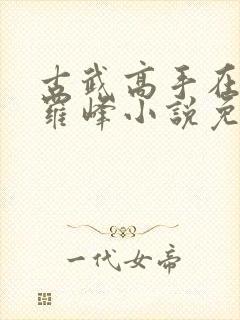 古武高手在
羅峰小說免
一代女帝